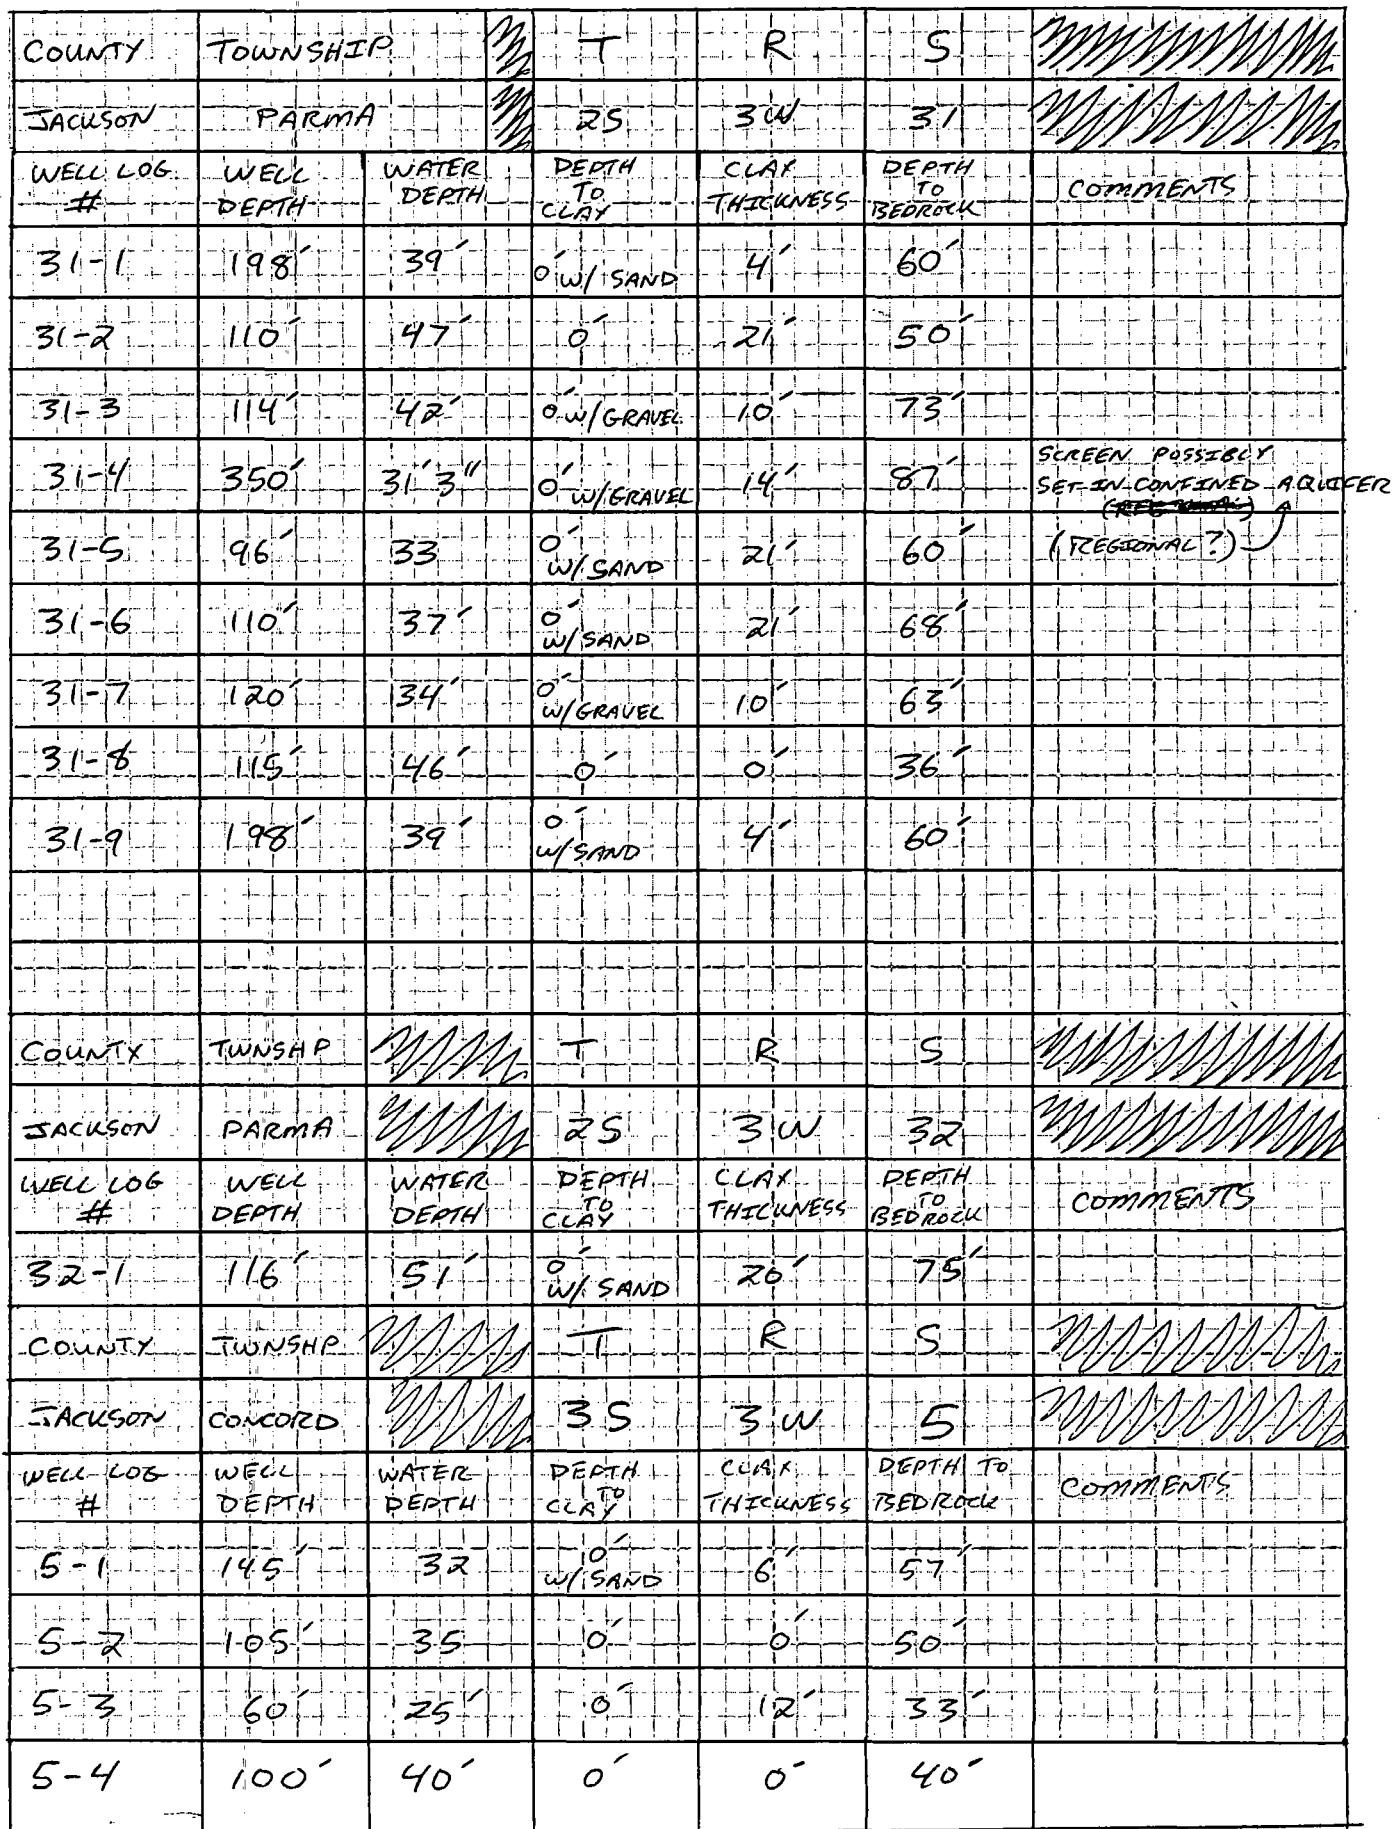 COUNTY TOWNSHIP T R S
JACKSON PARMA 2S 3W 31
WELL LOG # WELL DEPTH WATER DEPTH DEPTH TO CLAY CLAY THICKNESS DEPTH TO BEDROCK COMMENTS
31-1 198' 39' 0' W/ SAND 4' 60'
31-2 110' 47' 0' 21' 50'
31-3 114' 42' 0' W/ GRAVEL 10' 73'
31-4 350' 31'3" 0' W/ GRAVEL 14' 87' SCREEN POSSIBLY SET IN CONFINED AQUIFER
31-5 96' 33 0' W/ SAND 21' 60' (REGIONAL?)
31-6 110' 37' 0' W/ SAND 21' 68'
31-7 120' 34' 0' W/ GRAVEL 10' 63'
31-8 115' 46' 0' 0' 36'
31-9 198' 39' 0' W/ SAND 4' 60'
COUNTY TWNSHP T R S
JACKSON PARMA 2S 3W 32
WELL LOG # WELL DEPTH WATER DEPTH DEPTH TO CLAY CLAY THICKNESS DEPTH TO BEDROCK COMMENTS
32-1 116' 51' 0' W/ SAND 20' 75'
COUNTY TWNSHP T R S
JACKSON CONCORD 3S 3W 5
WELL LOG # WELL DEPTH WATER DEPTH DEPTH TO CLAY CLAY THICKNESS DEPTH TO BEDROCK COMMENTS
5-1 145' 32 0' W/ SAND 6' 57'
5-2 105' 35 0' 0' 50'
5-3 60' 25' 0' 12' 33'
5-4 100' 40' 0' 0' 40'